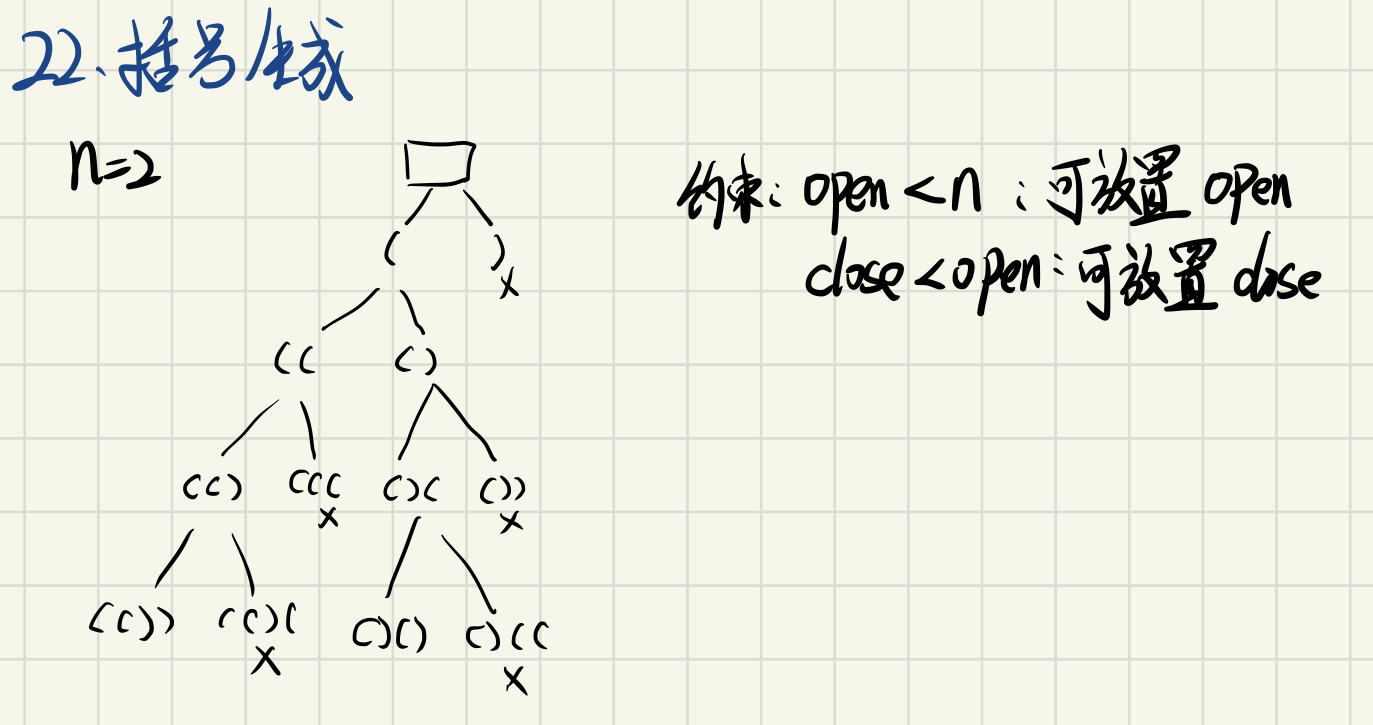 22、括号生成
n=2
约束: open < n : 可放置 open
close < open: 可放置 close
( )
x
(( ()
(() ((( ()( ())
x x
(()) (()( ()() ()((
x x